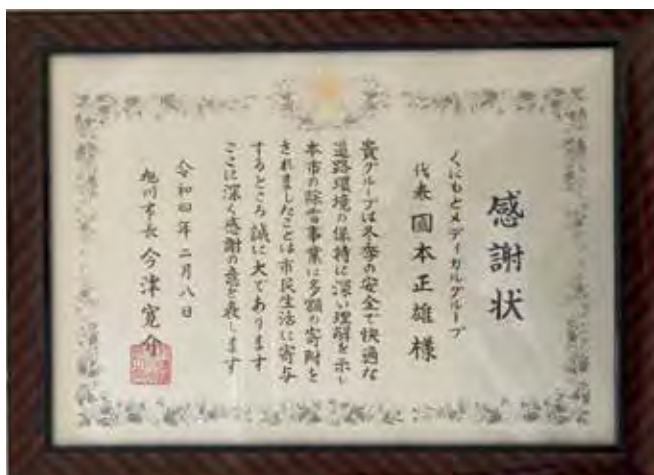 感謝状
くにもとメディカルグループ
代表 國本正雄 様
貴グループは冬季の安全で快適な
道路環境の保持に深い理解を示し
本市の除雪事業に多額の寄附を
されましたことは市民生活に寄与
するところ誠に大であります
ここに深く感謝の意を表します
令和四年二月八日
旭川市長 今津寛介